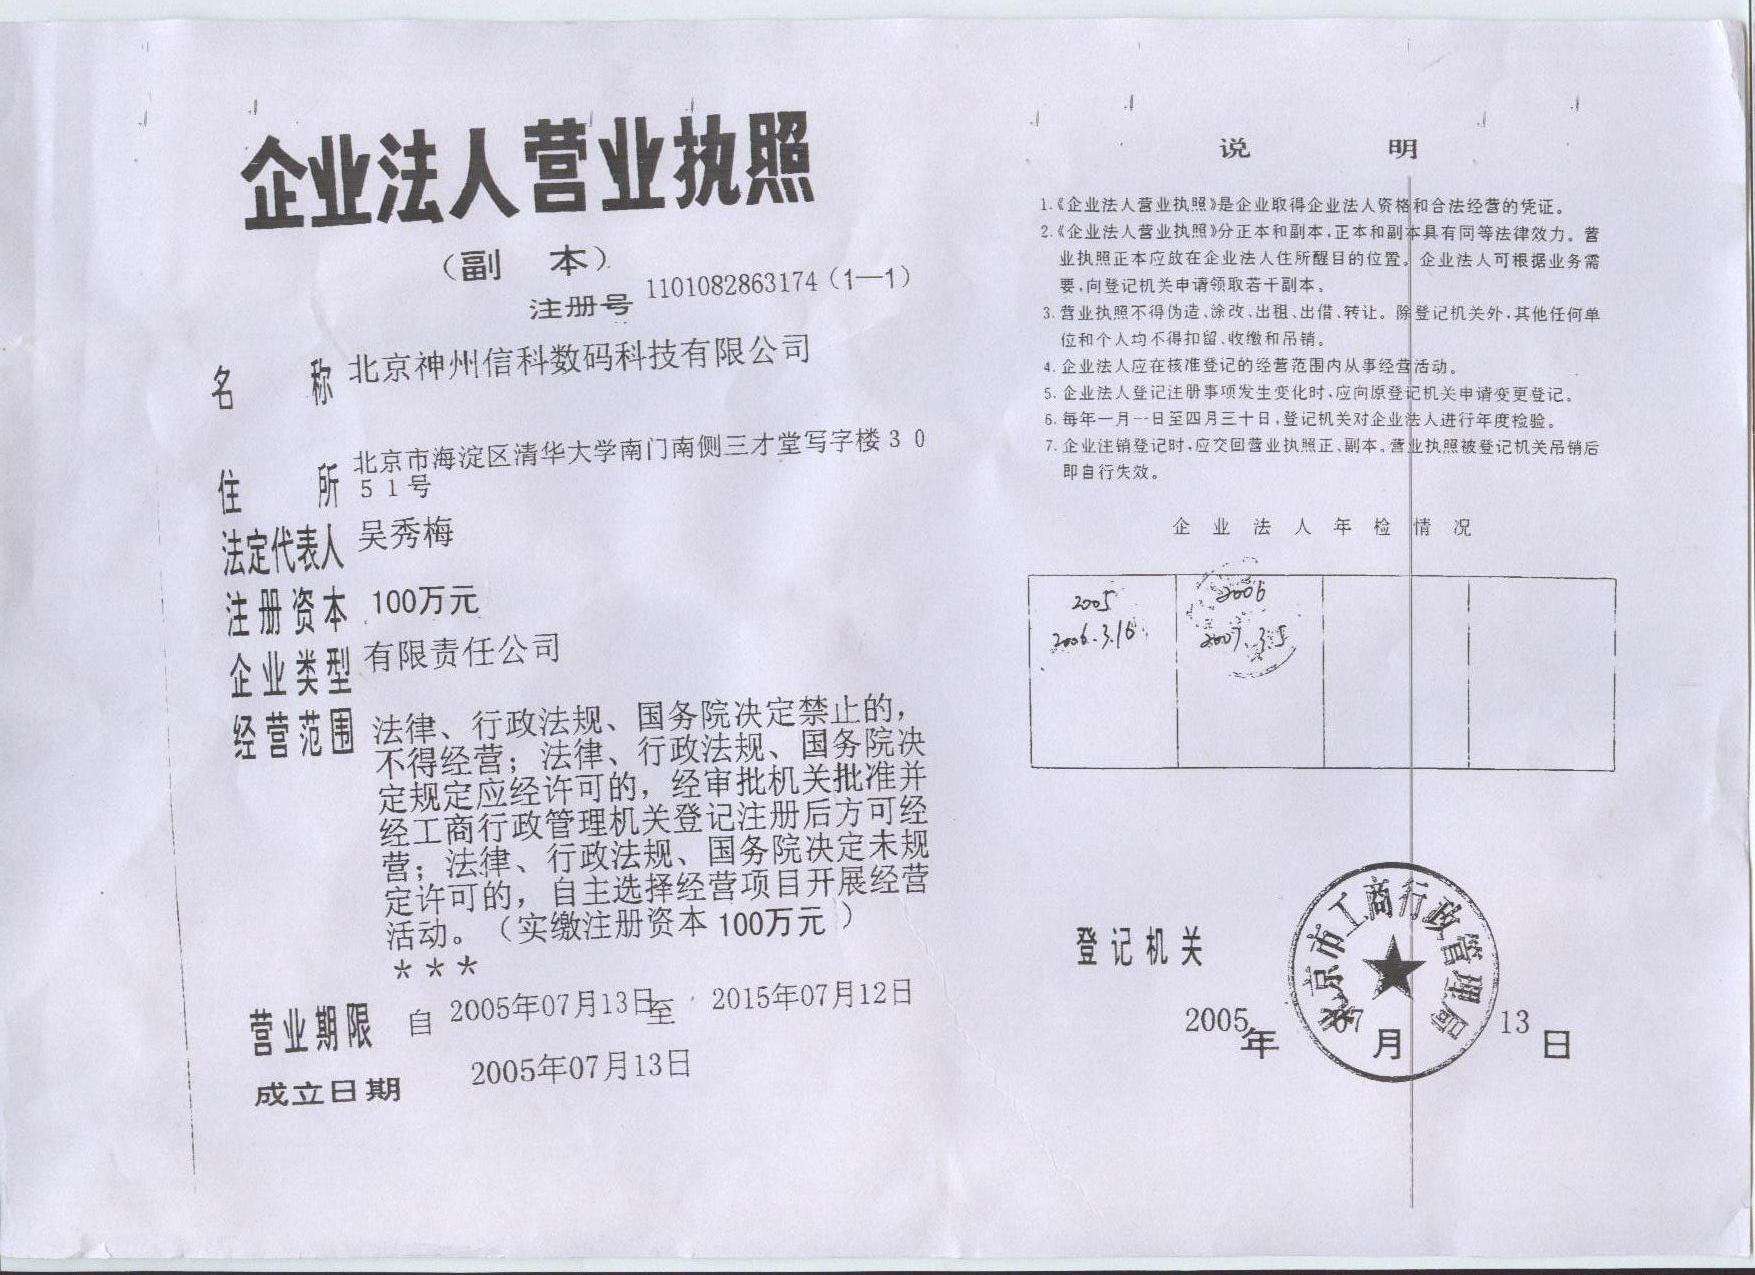 企业法人营业执照
（副 本）
注册号 1101082863174（1—1）
名 称 北京神州信科数码科技有限公司
住 所 北京市海淀区清华大学南门南侧三才堂写字楼30
51号
法定代表人 吴秀梅
注册资本 100万元
企业类型 有限责任公司
经营范围 法律、行政法规、国务院决定禁止的，
不得经营；法律、行政法规、国务院决
定规定应经许可的，经审批机关批准并
经工商行政管理机关登记注册后方可经
营；法律、行政法规、国务院决定未规
定许可的，自主选择经营项目开展经营
活动。（实缴注册资本 100万元 ）
＊＊＊
营业期限 自 2005年07月13日至 2015年07月12日
成立日期 2005年07月13日
说 明
1.《企业法人营业执照》是企业取得企业法人资格和合法经营的凭证。
2.《企业法人营业执照》分正本和副本，正本和副本具有同等法律效力。营
业执照正本应放在企业法人住所醒目的位置。企业法人可根据业务需
要，向登记机关申请领取若干副本。
3. 营业执照不得伪造、涂改、出租、出借、转让。除登记机关外，其他任何单
位和个人均不得扣留、收缴和吊销。
4. 企业法人应在核准登记的经营范围内从事经营活动。
5. 企业法人登记注册事项发生变化时，应向原登记机关申请变更登记。
6. 每年一月一日至四月三十日，登记机关对企业法人进行年度检验。
7. 企业注销登记时，应交回营业执照正、副本。营业执照被登记机关吊销后
即自行失效。
企业法人年检情况
2005 2006
2006.3.16 2007.3.5
登记机关
北京市工商行政管理局
2005年 07月 13日